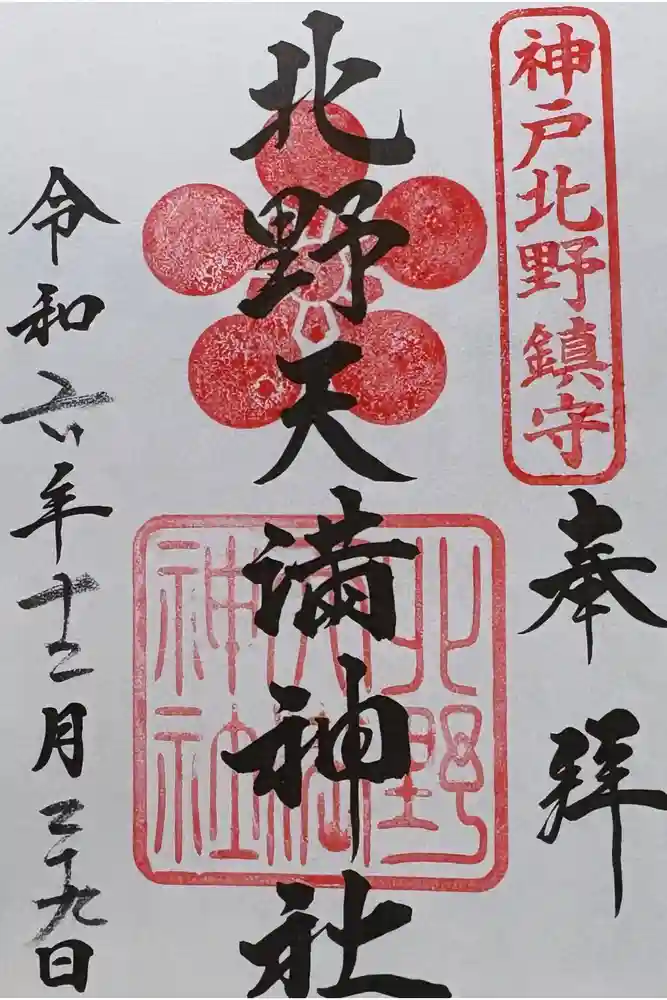 神戸北野鎮守
奉拝
北野天満神社
北野
天満
神社
令和六年十二月二十九日